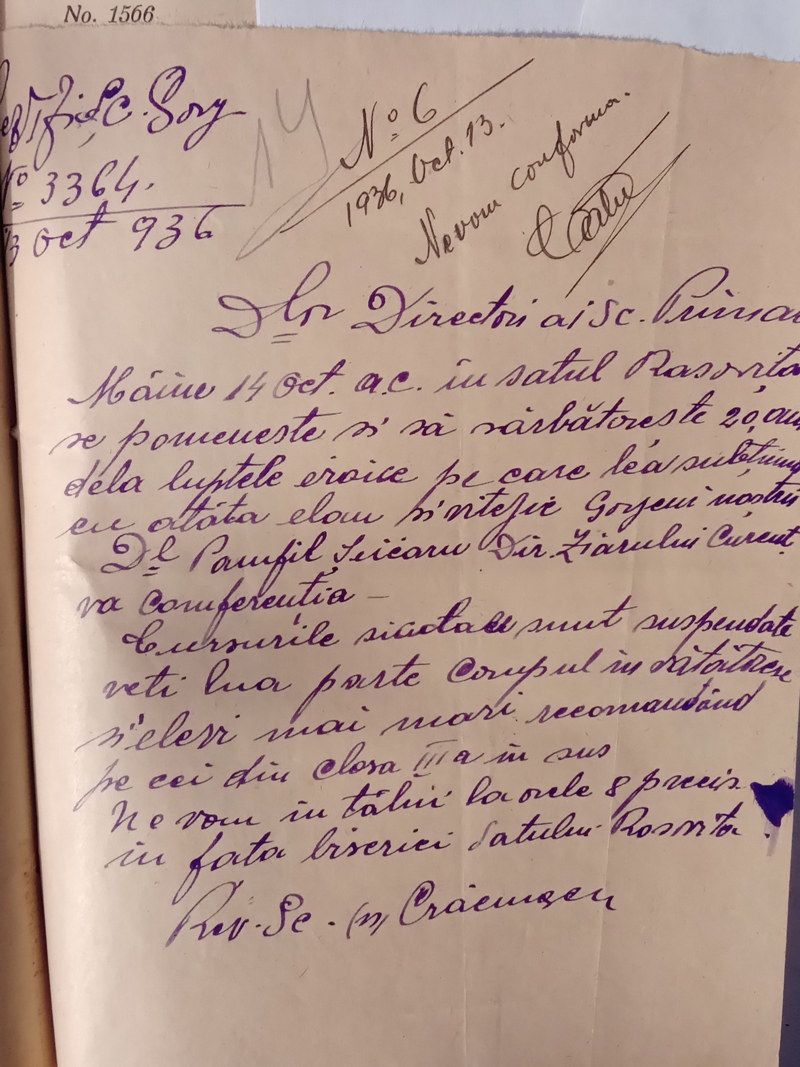 No. 1566
Sc. Gorj
No 3364.
13 Oct 936
14
No 6
1936, Oct. 13.
Ne vom conforma.
Dlor Directori ai Sc. Primar
Mâine 14 Oct. a.c. în satul Rasovița
se pomenește și să sărbătorește 20 ani
dela luptele eroice pe care lea susținut
cu atâta elan și vitejie Gorjenii noștrii
Dl Pamfil Șeicaru Dir. Ziarului Curent
va comferenția —
Cursurile sunt suspendate
veti lua parte Corpul învătătoresc
și elevi mai mari recomandând
pe cei din clasa III a în sus
Ne vom întâlni la orele 8 precis
în fata biserici satului Rasovita.
Rev. Sc.